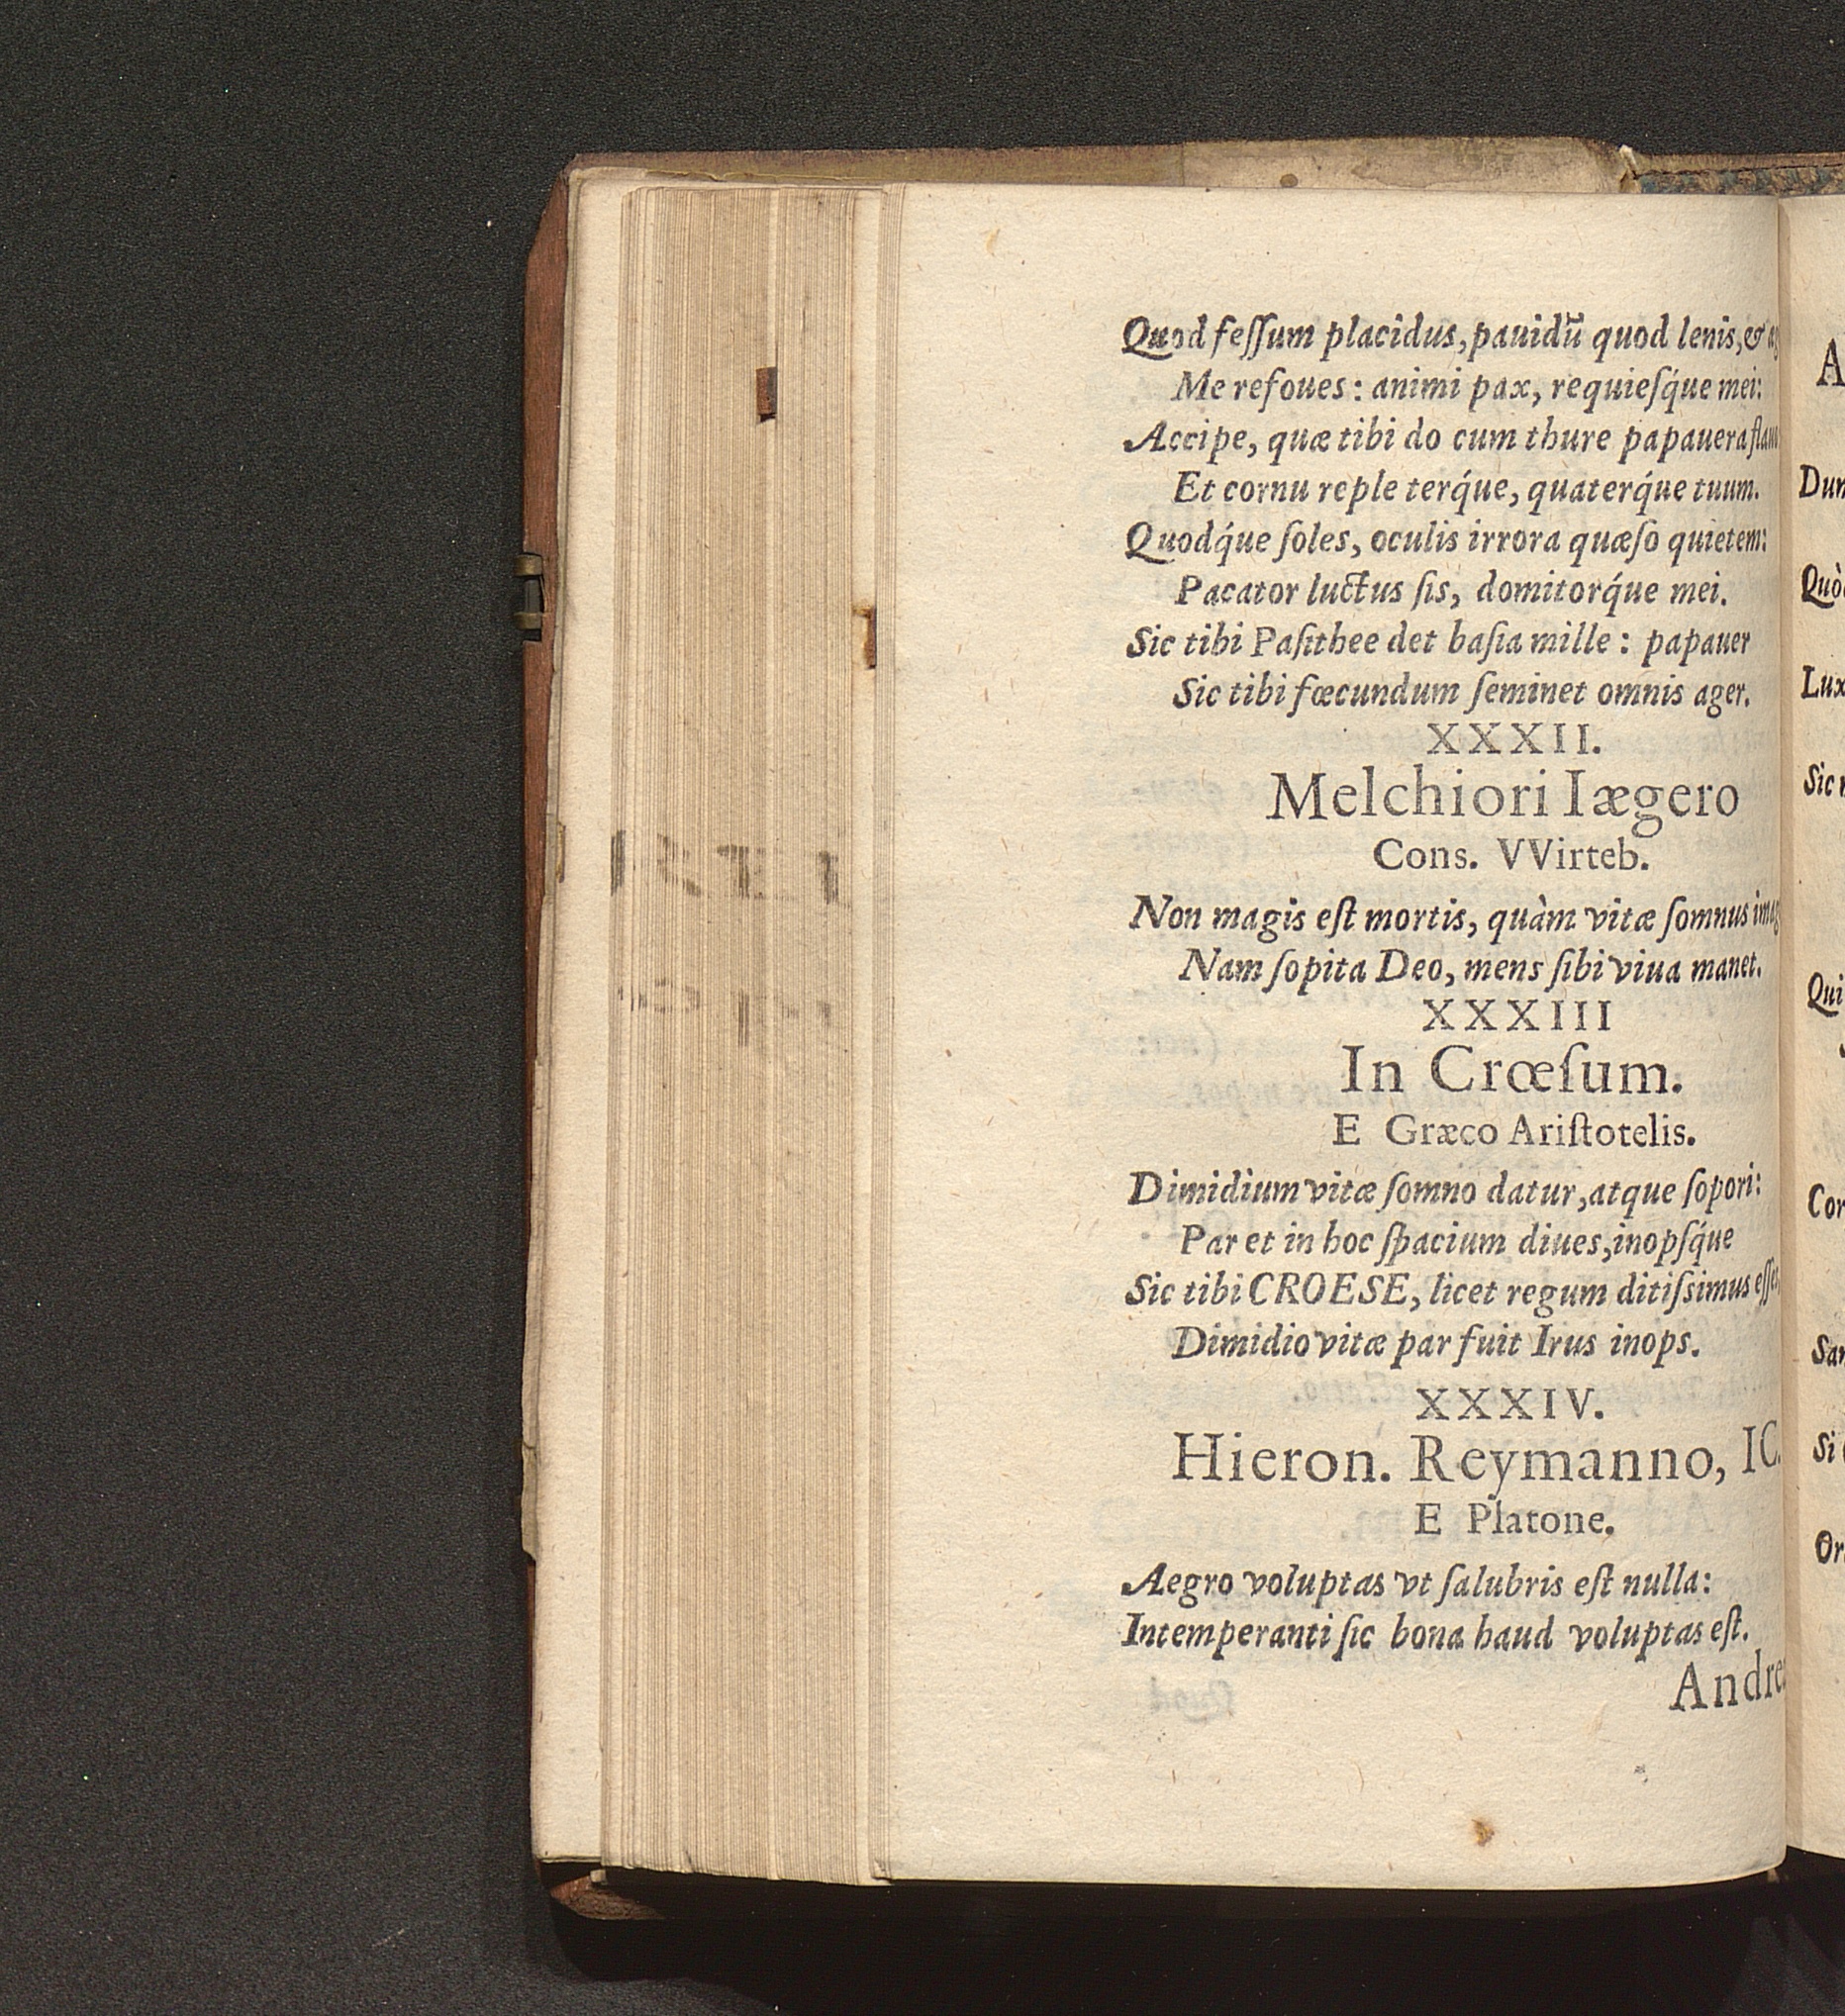 Quod feſſum placidus, pauidū quod lenis, &
Me refoues: animi pax, requieſq́ue mei:
Accipe, quæ tibi do cum thure papauera
Et cornu reple terq́ue, quaterq́ue tuum.
Quodq́ue ſoles, oculis irrora quæſo quietem:
Pacator luctus ſis, domitorq́ue mei.
Sic tibi Paſithee det baſia mille: papauer
Sic tibi fœcundum ſeminet omnis ager.
XXXII.
Melchiori Iægero
Cons. VVirteb.
Non magis eſt mortis, quàm vitæ ſomnus
Nam ſopita Deo, mens ſibi viua manet.
XXXIII
In Crœſum.
E Græco Ariſtotelis.
Dimidium vitæ ſomno datur, atque ſopori:
Par et in hoc ſpacium diues, inopſq́ue
Sic tibi CROESE, licet regum ditiſsimus
Dimidio vitæ par fuit Irus inops.
XXXIV.
Hieron. Reymanno, IC.
E Platone.
Aegro voluptas vt ſalubris eſt nulla:
Intemperanti ſic bona haud voluptas eſt.
Andre
A
Dum
Quò
Lux
Sic
Qui
Cor
San
Si
Or